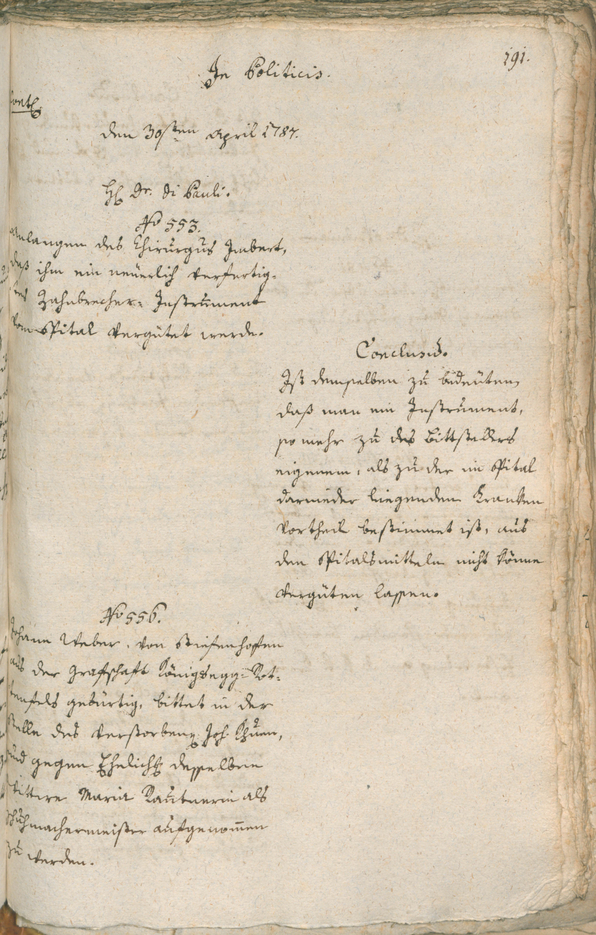 191.
In Politicis.
den 30sten April 1787.
H. Dr. Di Pauli.
No 553.
Anlangen des Chirurgus Imbert,
daß ihm ein neuerlich verfertig-
tes Zahnbrecher-Instrument
vom Spital vergütet werde.
Conclusum.
Ist demselben zu bedeuten,
daß man ein Instrument,
so mehr zu des Bittstellers
eigenem, als zu der im Spital
darnieder liegenden Kranken
Vortheil bestimmet ist, aus
den Spitalsmitteln nicht könne
vergüten lassen.
No 556.
Johann Weber, von Stiefenhoffen
aus der Grafschaft Königsegg-Rot-
tenfels gebürtig, bittet in der
Stelle des verstorbenen Joh.
und gegen Ehelich desselben
Wittwe Maria Rautnerin als
Schuhmachermeister aufgenommen
zu werden.